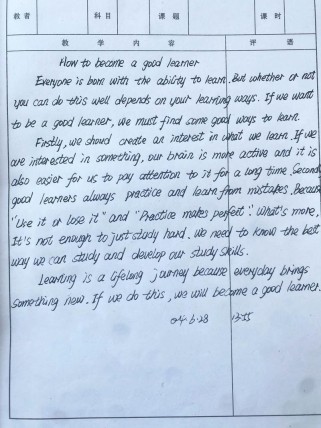 教者 科目 课题 课时
教学内容 评语
How to become a good learner
Everyone is born with the ability to learn. But whether or not
you can do this well depends on your learning ways. If we want
to be a good learner, we must find some good ways to learn.
Firstly, we should create an interest in what we learn. If we
are interested in something, our brain is more active and it is
also easier for us to pay attention to it for a long time. Second,
good learners always practice and learn from mistakes. Because
"Use it or lose it" and "Practice makes perfect". What's more,
It's not enough to just study hard. We need to know the best
way we can study and develop our study skills.
Learning is a lifelong journey because everyday brings
something new. If we do this, we will become a good learner.
04-6-28 13:55